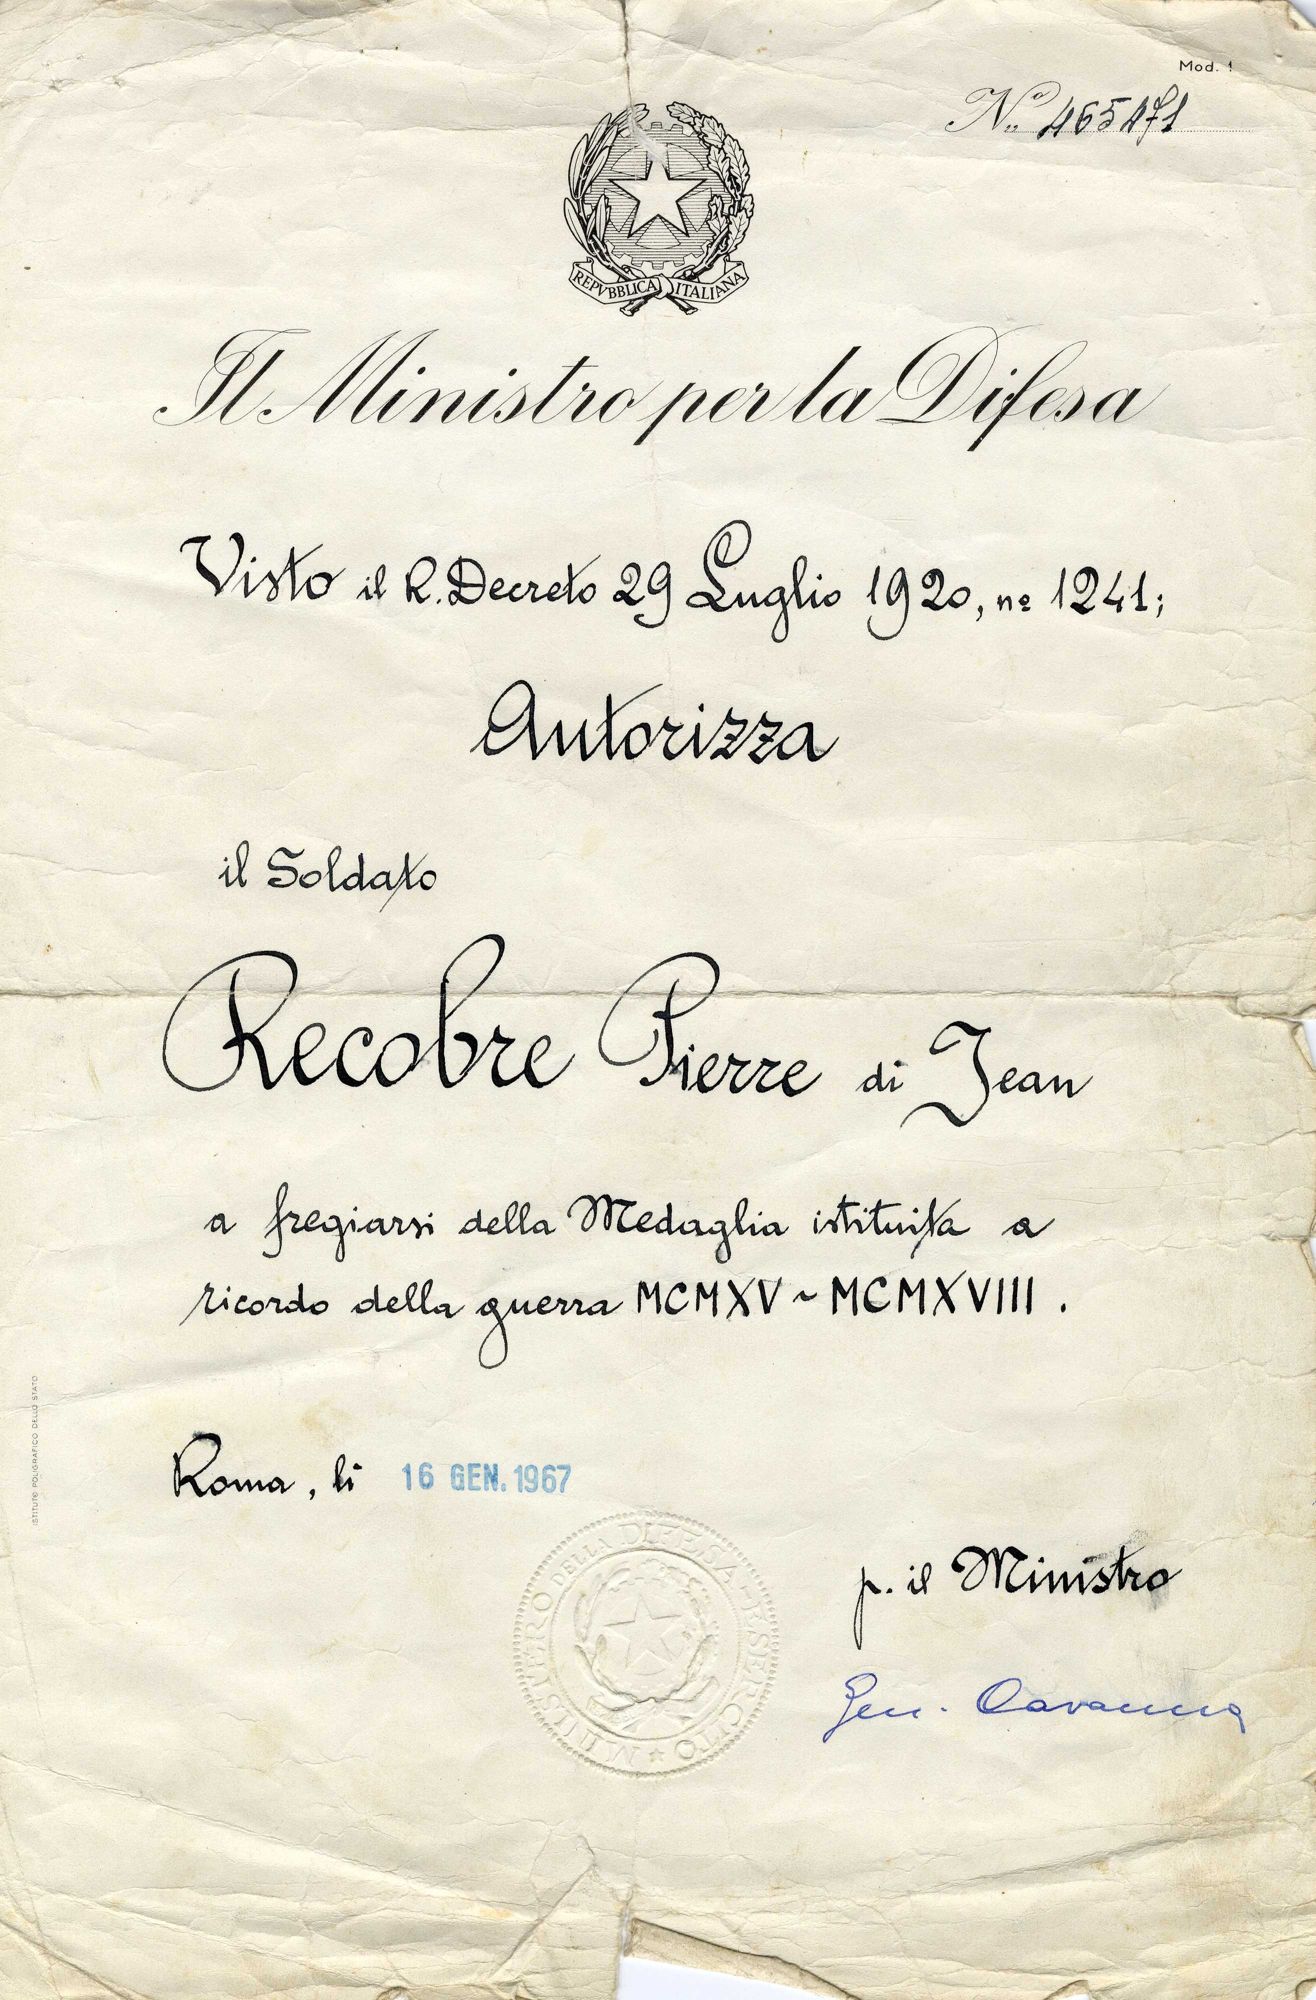 Mod. 1
N.º 465471
REPVBBLICA ITALIANA
Il Ministro per la Difesa
Visto il R. Decreto 29 Luglio 1920, nº 1241;
Autorizza
il Soldato
Recobre Pierre di Jean
a fregiarsi della Medaglia istituita a
ricordo della guerra MCMXV ~ MCMXVIII.
Roma, li 16 GEN. 1967
MINISTERO DELLA DIFESA-ESERCITO
p. il Ministro
Gen. Cavanna
ISTITUTO POLIGRAFICO DELLO STATO